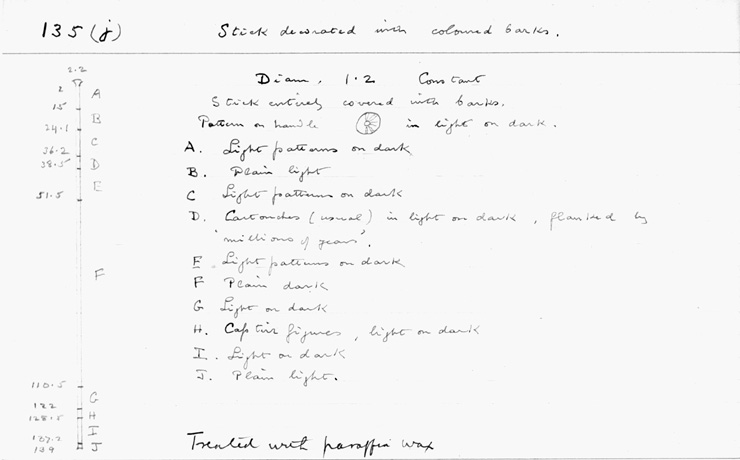 135(j) Stick decorated with coloured barks.
2.2
2
A
15
B
24.1
C
36.2
38.5 D
E
51.5
F
110.5
G
122
128.5 H
I
137.2
139 J
Diam. 1.2 Constant
Stick entirely covered with barks.
Pattern on handle in light on dark.
A. Light patterns on dark
B. Plain light
C Light patterns on dark
D. Cartouches (usual) in light on dark, flanked by
'millions of years'.
E. Light patterns on dark
F Plain dark
G Light on dark
H. Captive figures, light on dark
I. Light on dark
J. Plain light.
Treated with paraffin wax